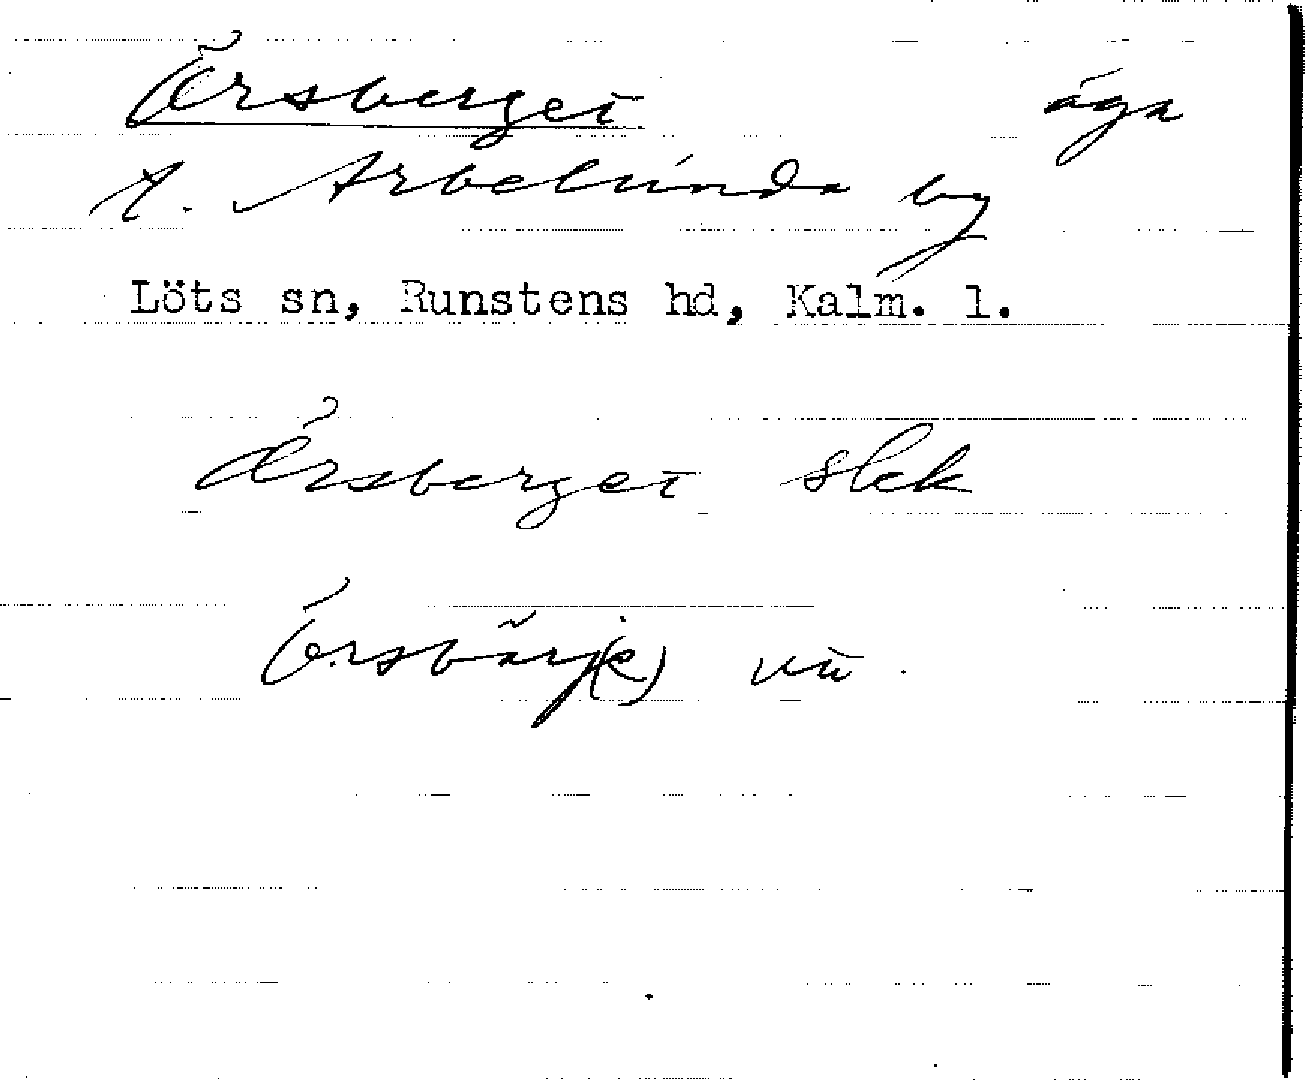 Örsberget äga
t. Arbelunda by
Löts sn, Runstens hd, Kalm. l.
Örsberget slek
Örsbärj(e) vu.